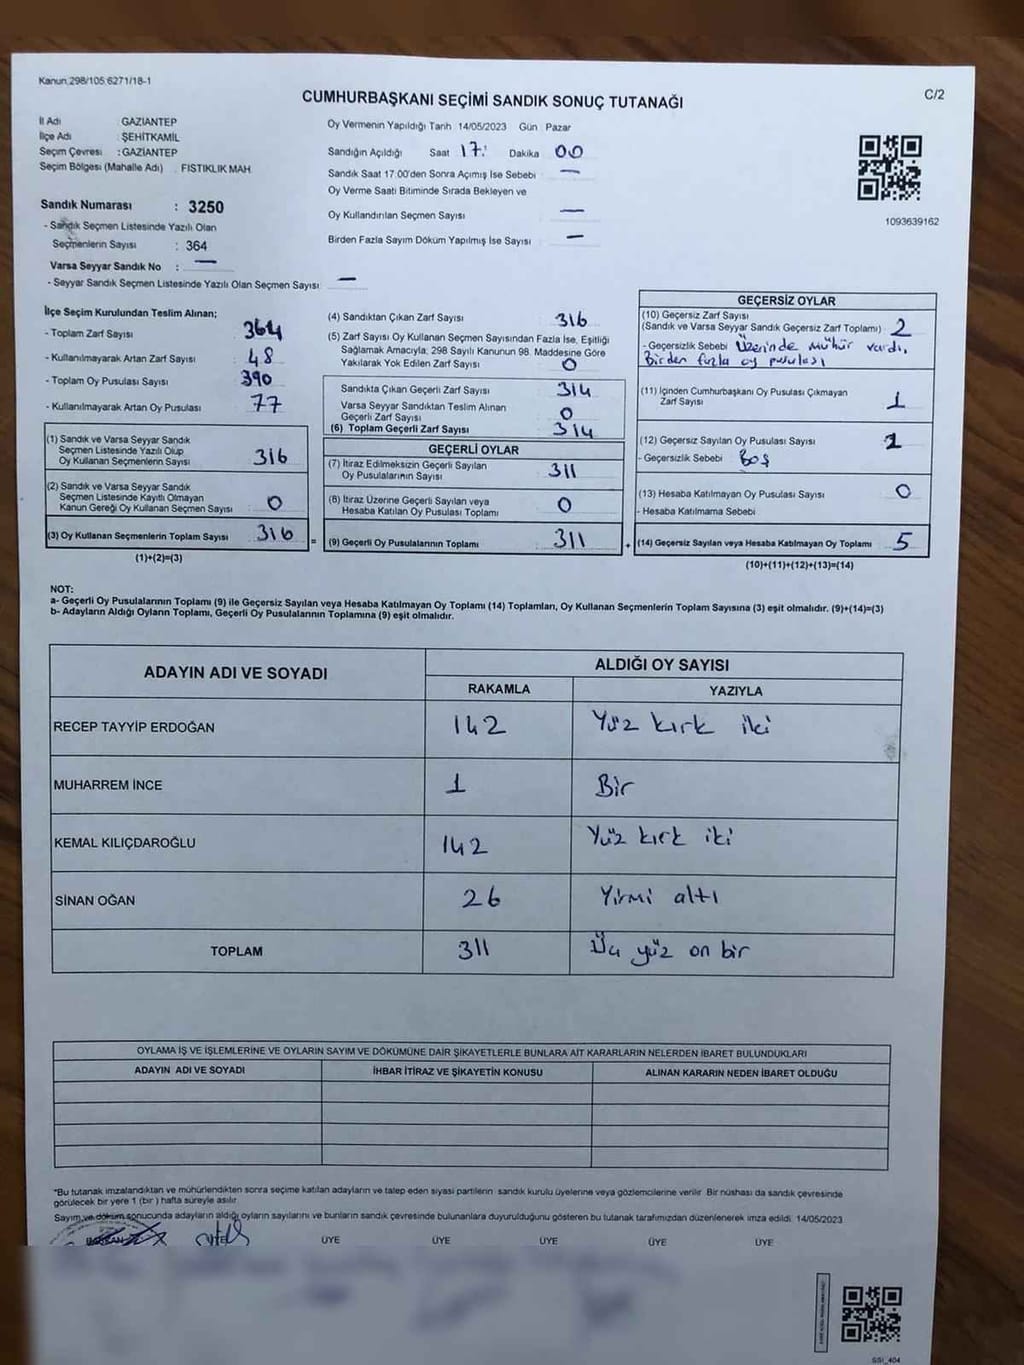 Kanun 298/105 6271/18-1
CUMHURBAŞKANI SEÇİMİ SANDIK SONUÇ TUTANAĞI
C/2
İl Adı : GAZİANTEP
İlçe Adı : ŞEHİTKAMİL
Seçim Çevresi : GAZİANTEP
Seçim Bölgesi (Mahalle Adı) : FISTIKLIK MAH.
Sandık Numarası : 3250
- Sandık Seçmen Listesinde Yazılı Olan
Seçmenlerin Sayısı : 364
Varsa Seyyar Sandık No : —
- Seyyar Sandık Seçmen Listesinde Yazılı Olan Seçmen Sayısı: —
Oy Vermenin Yapıldığı Tarih 14/05/2023 Gün Pazar
Sandığın Açıldığı Saat 17: Dakika 00
Sandık Saat 17:00'den Sonra Açımış İse Sebebi —
Oy Verme Saati Bitiminde Sırada Bekleyen ve
Oy Kullandırılan Seçmen Sayısı —
Birden Fazla Sayım Döküm Yapılmış İse Sayısı —
1093639162
İlçe Seçim Kurulundan Teslim Alınan;
- Toplam Zarf Sayısı 364
- Kullanılmayarak Artan Zarf Sayısı 48
- Toplam Oy Pusulası Sayısı 390
- Kullanılmayarak Artan Oy Pusulası 77
(1) Sandık ve Varsa Seyyar Sandık
Seçmen Listesinde Yazılı Olup
Oy Kullanan Seçmenlerin Sayısı 316
(2) Sandık ve Varsa Seyyar Sandık
Seçmen Listesinde Kayıtlı Olmayan
Kanun Gereği Oy Kullanan Seçmen Sayısı 0
(3) Oy Kullanan Seçmenlerin Toplam Sayısı 316 =
(1)+(2)=(3)
(4) Sandıktan Çıkan Zarf Sayısı 316
(5) Zarf Sayısı Oy Kullanan Seçmen Sayısından Fazla İse, Eşitliği
Sağlamak Amacıyla; 298 Sayılı Kanunun 98. Maddesine Göre
Yakılarak Yok Edilen Zarf Sayısı 0
Sandıkta Çıkan Geçerli Zarf Sayısı 314
Varsa Seyyar Sandıktan Teslim Alınan
Geçerli Zarf Sayısı 0
(6) Toplam Geçerli Zarf Sayısı 314
GEÇERLİ OYLAR
(7) İtiraz Edilmeksizin Geçerli Sayılan
Oy Pusulalarının Sayısı 311
(8) İtiraz Üzerine Geçerli Sayılan veya
Hesaba Katılan Oy Pusulası Toplamı 0
(9) Geçerli Oy Pusulalarının Toplamı 311 +
GEÇERSİZ OYLAR
(10) Geçersiz Zarf Sayısı
(Sandık ve Varsa Seyyar Sandık Geçersiz Zarf Toplamı) 2
- Geçersizlik Sebebi Üzerinde mühür vardı,
Birden fazla oy pusulası
(11) İçinden Cumhurbaşkanı Oy Pusulası Çıkmayan
Zarf Sayısı 1
(12) Geçersiz Sayılan Oy Pusulası Sayısı 2
- Geçersizlik Sebebi Boş
(13) Hesaba Katılmayan Oy Pusulası Sayısı 0
- Hesaba Katılmama Sebebi
(14) Geçersiz Sayılan veya Hesaba Katılmayan Oy Toplamı 5
(10)+(11)+(12)+(13)=(14)
NOT:
a- Geçerli Oy Pusulalarının Toplamı (9) ile Geçersiz Sayılan veya Hesaba Katılmayan Oy Toplamı (14) Toplamları, Oy Kullanan Seçmenlerin Toplam Sayısına (3) eşit olmalıdır. (9)+(14)=(3)
b- Adayların Aldığı Oyların Toplamı, Geçerli Oy Pusulalarının Toplamına (9) eşit olmalıdır.
ADAYIN ADI VE SOYADI ALDIĞI OY SAYISI
RAKAMLA YAZIYLA
RECEP TAYYİP ERDOĞAN 142 Yüz kırk iki
MUHARREM İNCE 1 Bir
KEMAL KILIÇDAROĞLU 142 Yüz kırk iki
SİNAN OĞAN 26 Yirmi altı
TOPLAM 311 Üç yüz on bir
OYLAMA İŞ VE İŞLEMLERİNE VE OYLARIN SAYIM VE DÖKÜMÜNE DAİR ŞİKAYETLERLE BUNLARA AİT KARARLARIN NELERDEN İBARET BULUNDUKLARI
ADAYIN ADI VE SOYADI İHBAR İTİRAZ VE ŞİKAYETİN KONUSU ALINAN KARARIN NEDEN İBARET OLDUĞU
*Bu tutanak imzalandıktan ve mühürlendikten sonra seçime katılan adayların ve talep eden siyasi partilerin sandık kurulu üyelerine veya gözlemcilerine verilir Bir nüshası da sandık çevresinde
görülecek bir yere 1 (bir ) hafta süreyle asılır.
Sayım ve döküm sonucunda adayların aldığı oyların sayılarını ve bunların sandık çevresinde bulunanlara duyurulduğunu gösteren bu tutanak tarafımızdan düzenlenerek imza edildi. 14/05/2023
BAŞKAN ÜYE ÜYE ÜYE ÜYE ÜYE
SSI_404